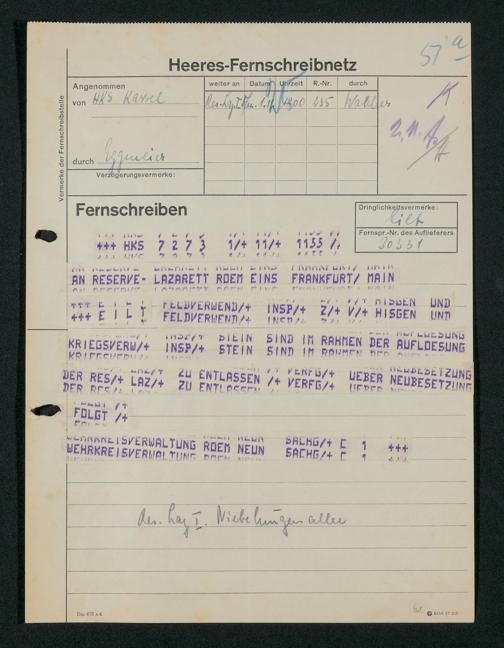 57 a
Heeres-Fernschreibnetz
Vermerke der Fernschreibstelle
Angenommen
von HKS Kassel
durch
Verzögerungsvermerke:
weiter an Datum Uhrzeit R.-Nr. durch
1.11. 1300 235
Fernschreiben
Dringlichkeitsvermerke:
Eilt
Fernspr.-Nr. des Auflieferers
30331
+++ HKS 7273 1/+ 11/+ 1155 /,
AN RESERVE- LAZARETT ROEM EINS FRANKFURT/ MAIN
+++ E I L T FELDVERWEND/+ INSP/+ Z/+ V/+ HISGEN UND
KRIEGSVERW/+ INSP/+ STEIN SIND IM RAHMEN DER AUFLOESUNG
DER RES/+ LAZ/+ ZU ENTLASSEN /+ VERFG/+ UEBER NEUBESETZUNG
FOLGT /+
WEHRKREISVERWALTUNG ROEM NEUN SACHG/+ C 1 +++
Res. Laz I. Niebelungenallee